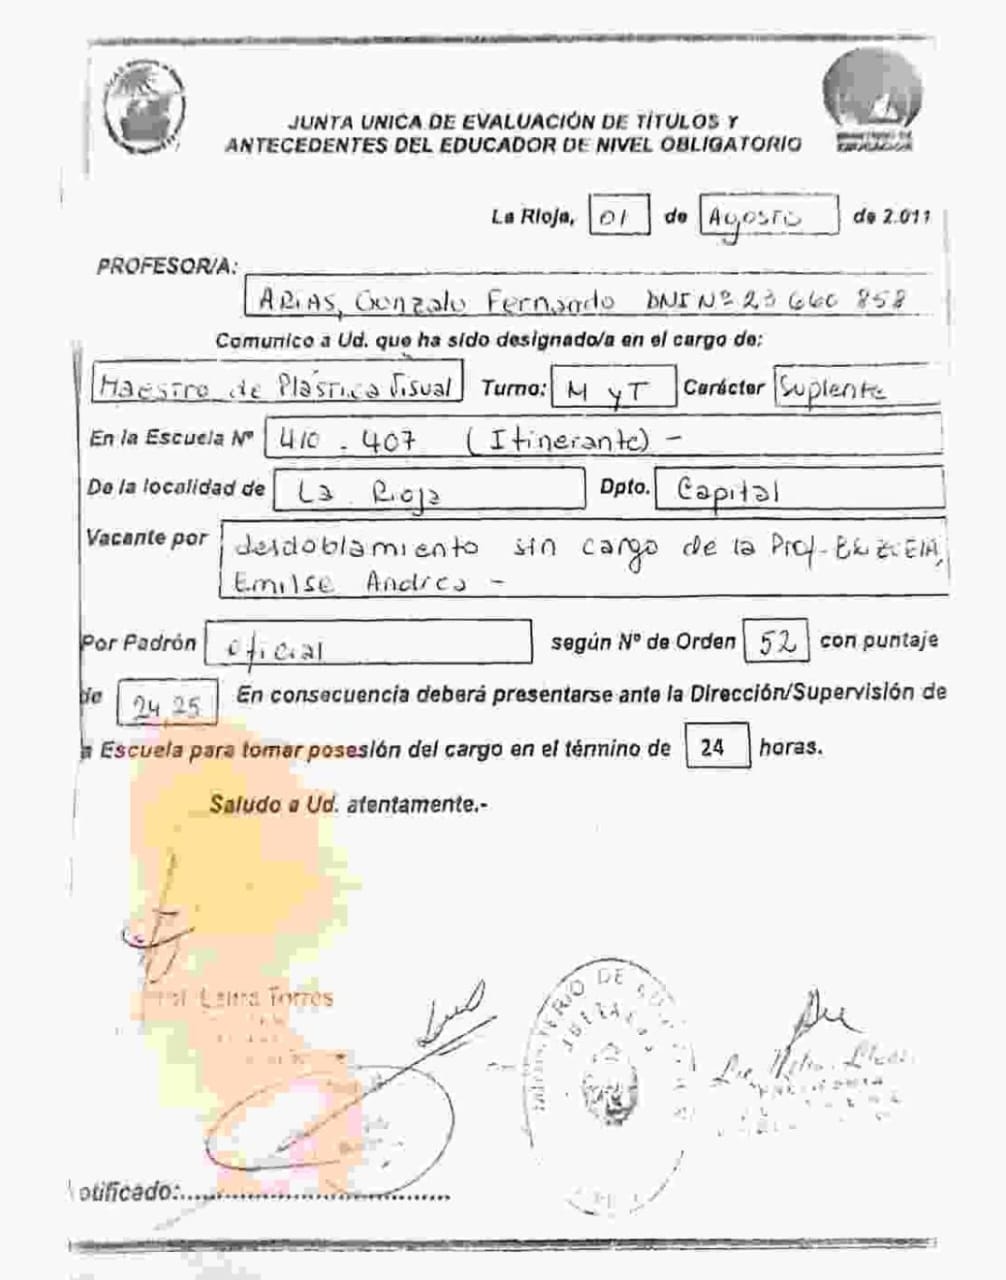 JUNTA UNICA DE EVALUACIÓN DE TÍTULOS Y
ANTECEDENTES DEL EDUCADOR DE NIVEL OBLIGATORIO
MINISTERIO DE
EDUCACION
La Rioja, 01 de Agosto de 2.011
PROFESOR/A:
ARIAS, Gonzalo Fernando DNI Nº 23 660 858
Comunico a Ud. que ha sido designado/a en el cargo de:
Maestro de Plástica Visual Turno: M y T Carácter Suplente
En la Escuela Nº 410 - 407 (Itinerante) -
De la localidad de La Rioja Dpto. Capital
Vacante por desdoblamiento sin cargo de la Prof.
Emilse Andrea -
Por Padrón oficial según Nº de Orden 52 con puntaje
de 24,25 En consecuencia deberá presentarse ante la Dirección/Supervisión de
a Escuela para tomar posesión del cargo en el término de 24 horas.
Saludo a Ud. atentamente.-
Prof. Laura Torres
MINISTERIO DE
otificado: